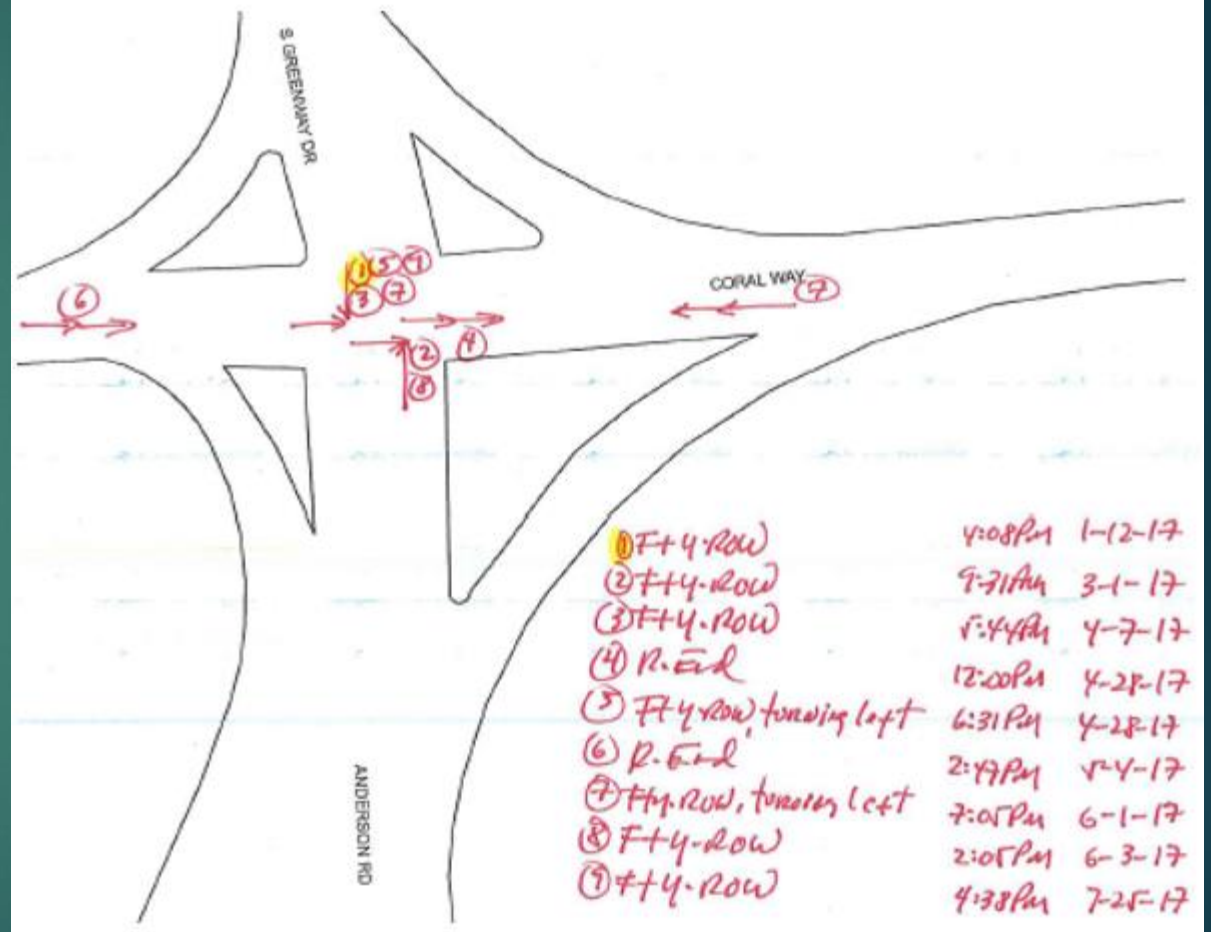 S GREENWAY DR
① ⑤ ⑨
③ ⑦
⑥
CORAL WAY
⑦
② ④
⑧
① F+Y-ROW 4:08PM 1-12-17
② F+Y-ROW 9:31AM 3-1-17
③ F+Y-ROW 5:44PM 4-7-17
④ R-End 12:00PM 4-28-17
⑤ F+Y ROW, turning left 6:31PM 4-28-17
⑥ R-End 2:47PM 5-4-17
⑦ F+Y-ROW, turning left 7:05PM 6-1-17
⑧ F+Y-ROW 2:05PM 6-3-17
⑨ F+Y-ROW 4:38PM 7-25-17
ANDERSON RD